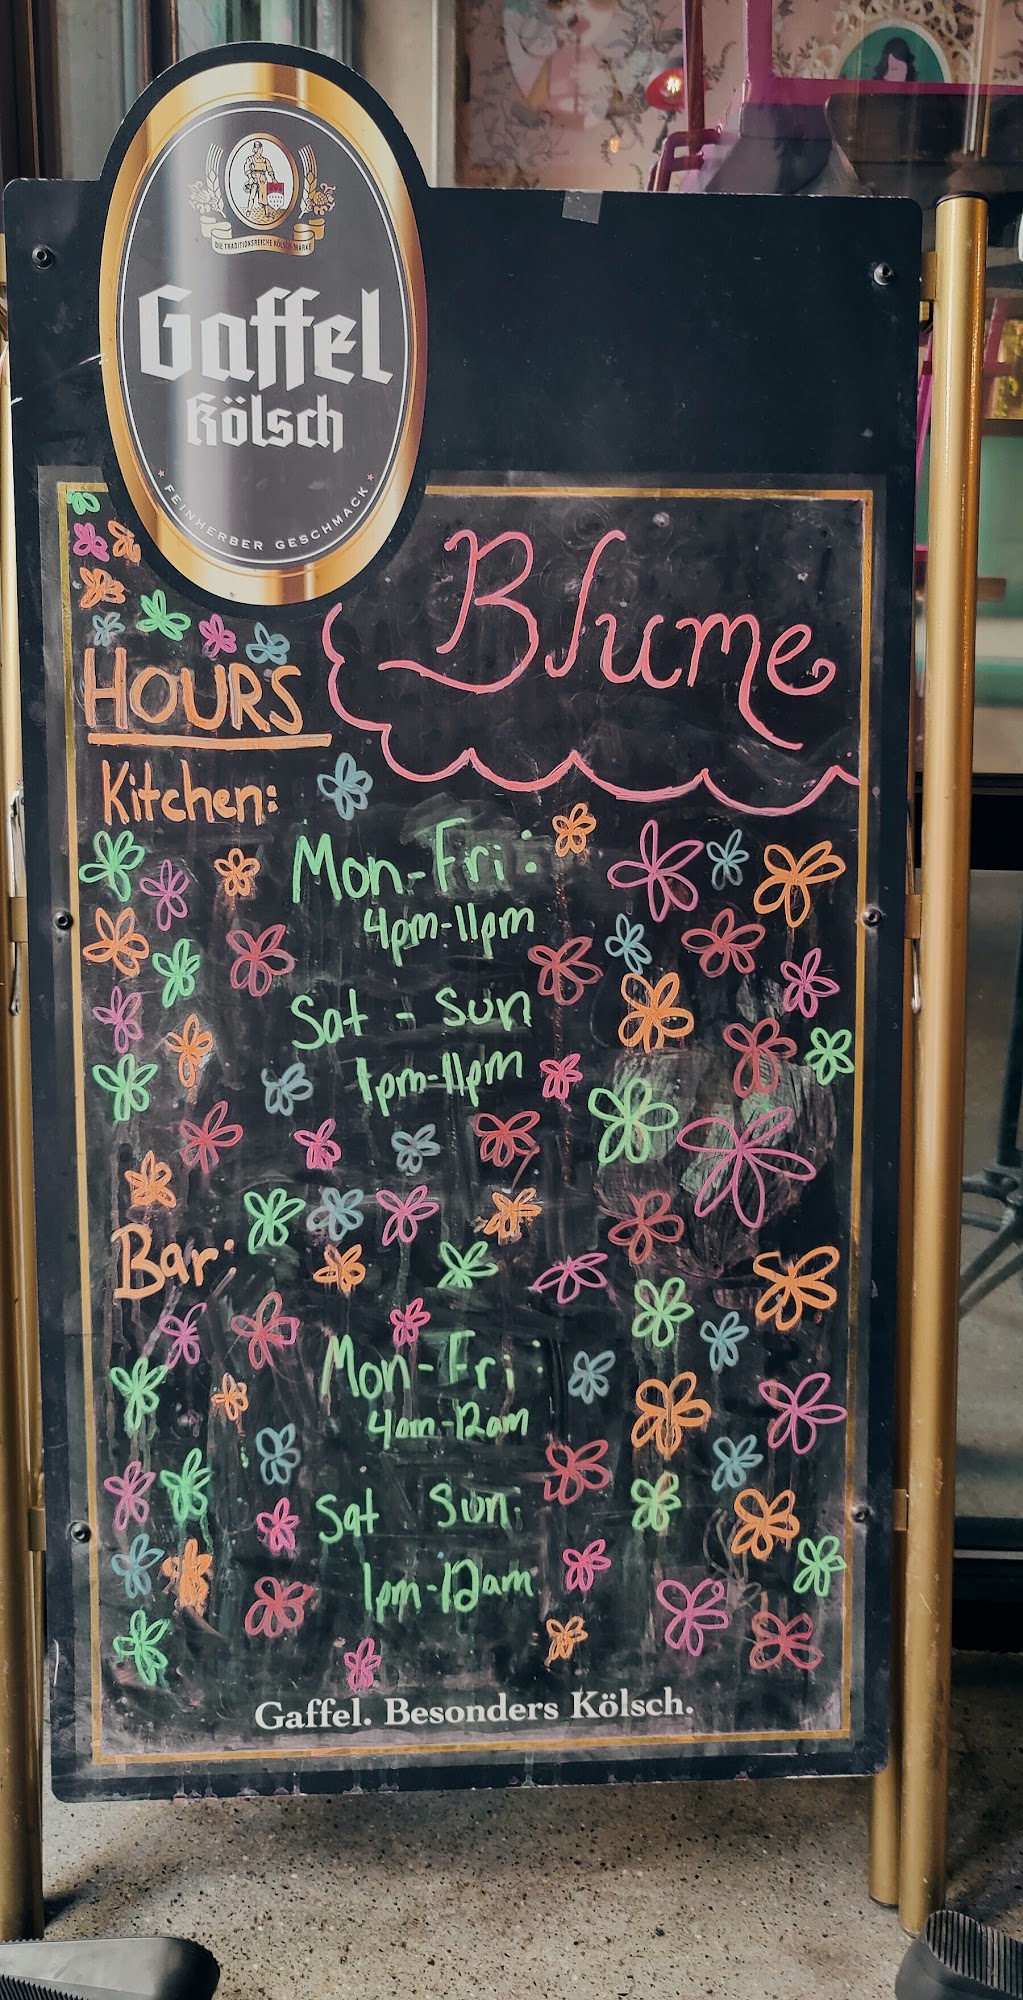 DIE TRADITIONSREICHE KÖLSCH-MARKE
Gaffel
Kölsch
FEINHERBER GESCHMACK
Blume
HOURS
Kitchen:
Mon-Fri:
4pm-11pm
Sat - Sun
1pm-11pm
Bar:
Mon-Fri:
4pm-12am
Sat Sun:
1pm-12am
Gaffel. Besonders Kölsch.